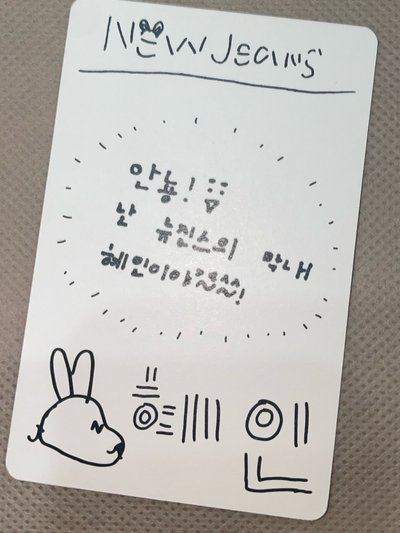 NEWJEANS
안뇽!
난 뉴진스의 막내
혜인이야~~~!
혜인